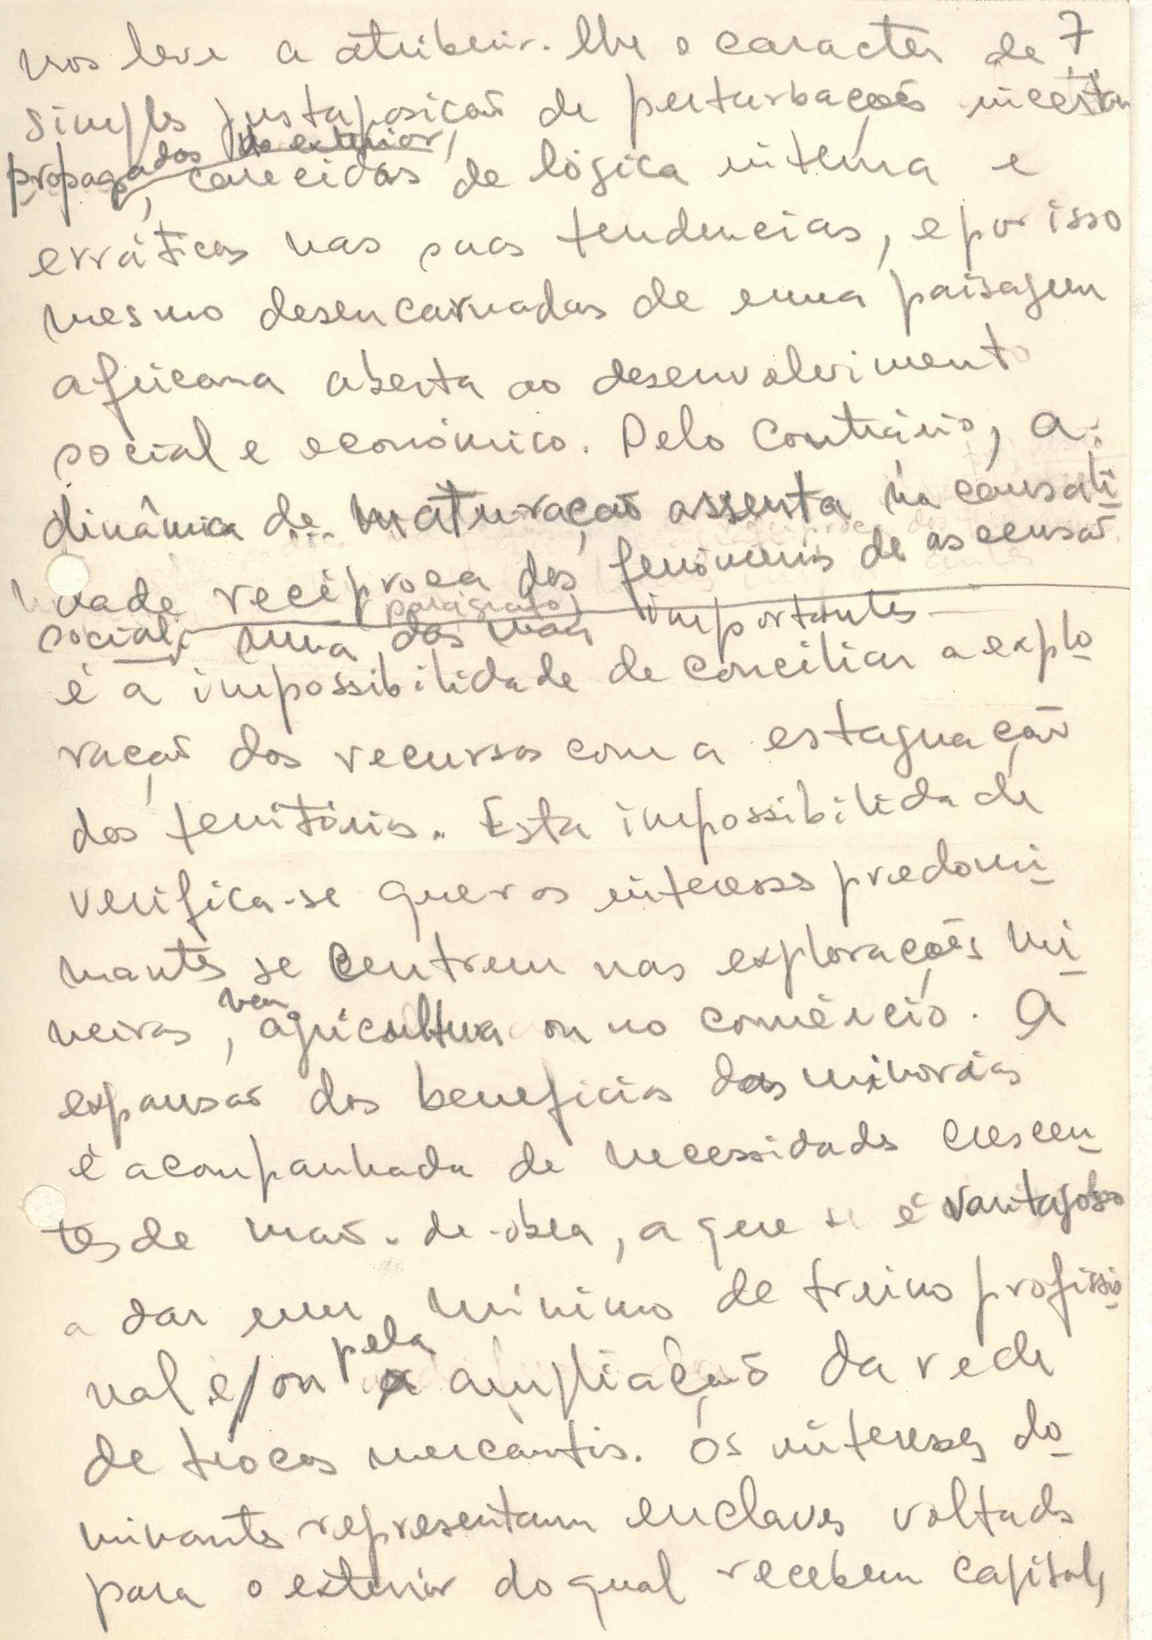 7
nos leve a atribuir-lhe o caracter de
simples justaposição de perturbações incertas
propagadas do exterior,
carecidas de lógica interna e
erráticas nas suas tendencias, e por isso
mesmo desencarnadas de uma paisagem
africana aberta ao desenvolvimento
social e económico. Pelo contrário, a
dinâmica de maturação assenta na causali-
dade recíproca dos fenómenos de ascensão
(parágrafo)
social, uma das mais importantes
é a impossibilidade de conciliar a explo-
ração dos recursos com a estagnação
dos territórios. Esta impossibilidade
verifica-se quer os interesses predomi-
nantes se centrem nas explorações mi-
neiras, na agricultura ou no comércio. A
expansão dos beneficios das minorias
é acompanhada de necessidades crescen-
tes de mão-de-obra, a que se é vantajoso
a dar um mínimo de treino profissio-
nal e/ou pela ampliação da rede
de trocas mercantis. Os interesses do-
minantes representam enclaves voltados
para o exterior do qual recebem capitais,